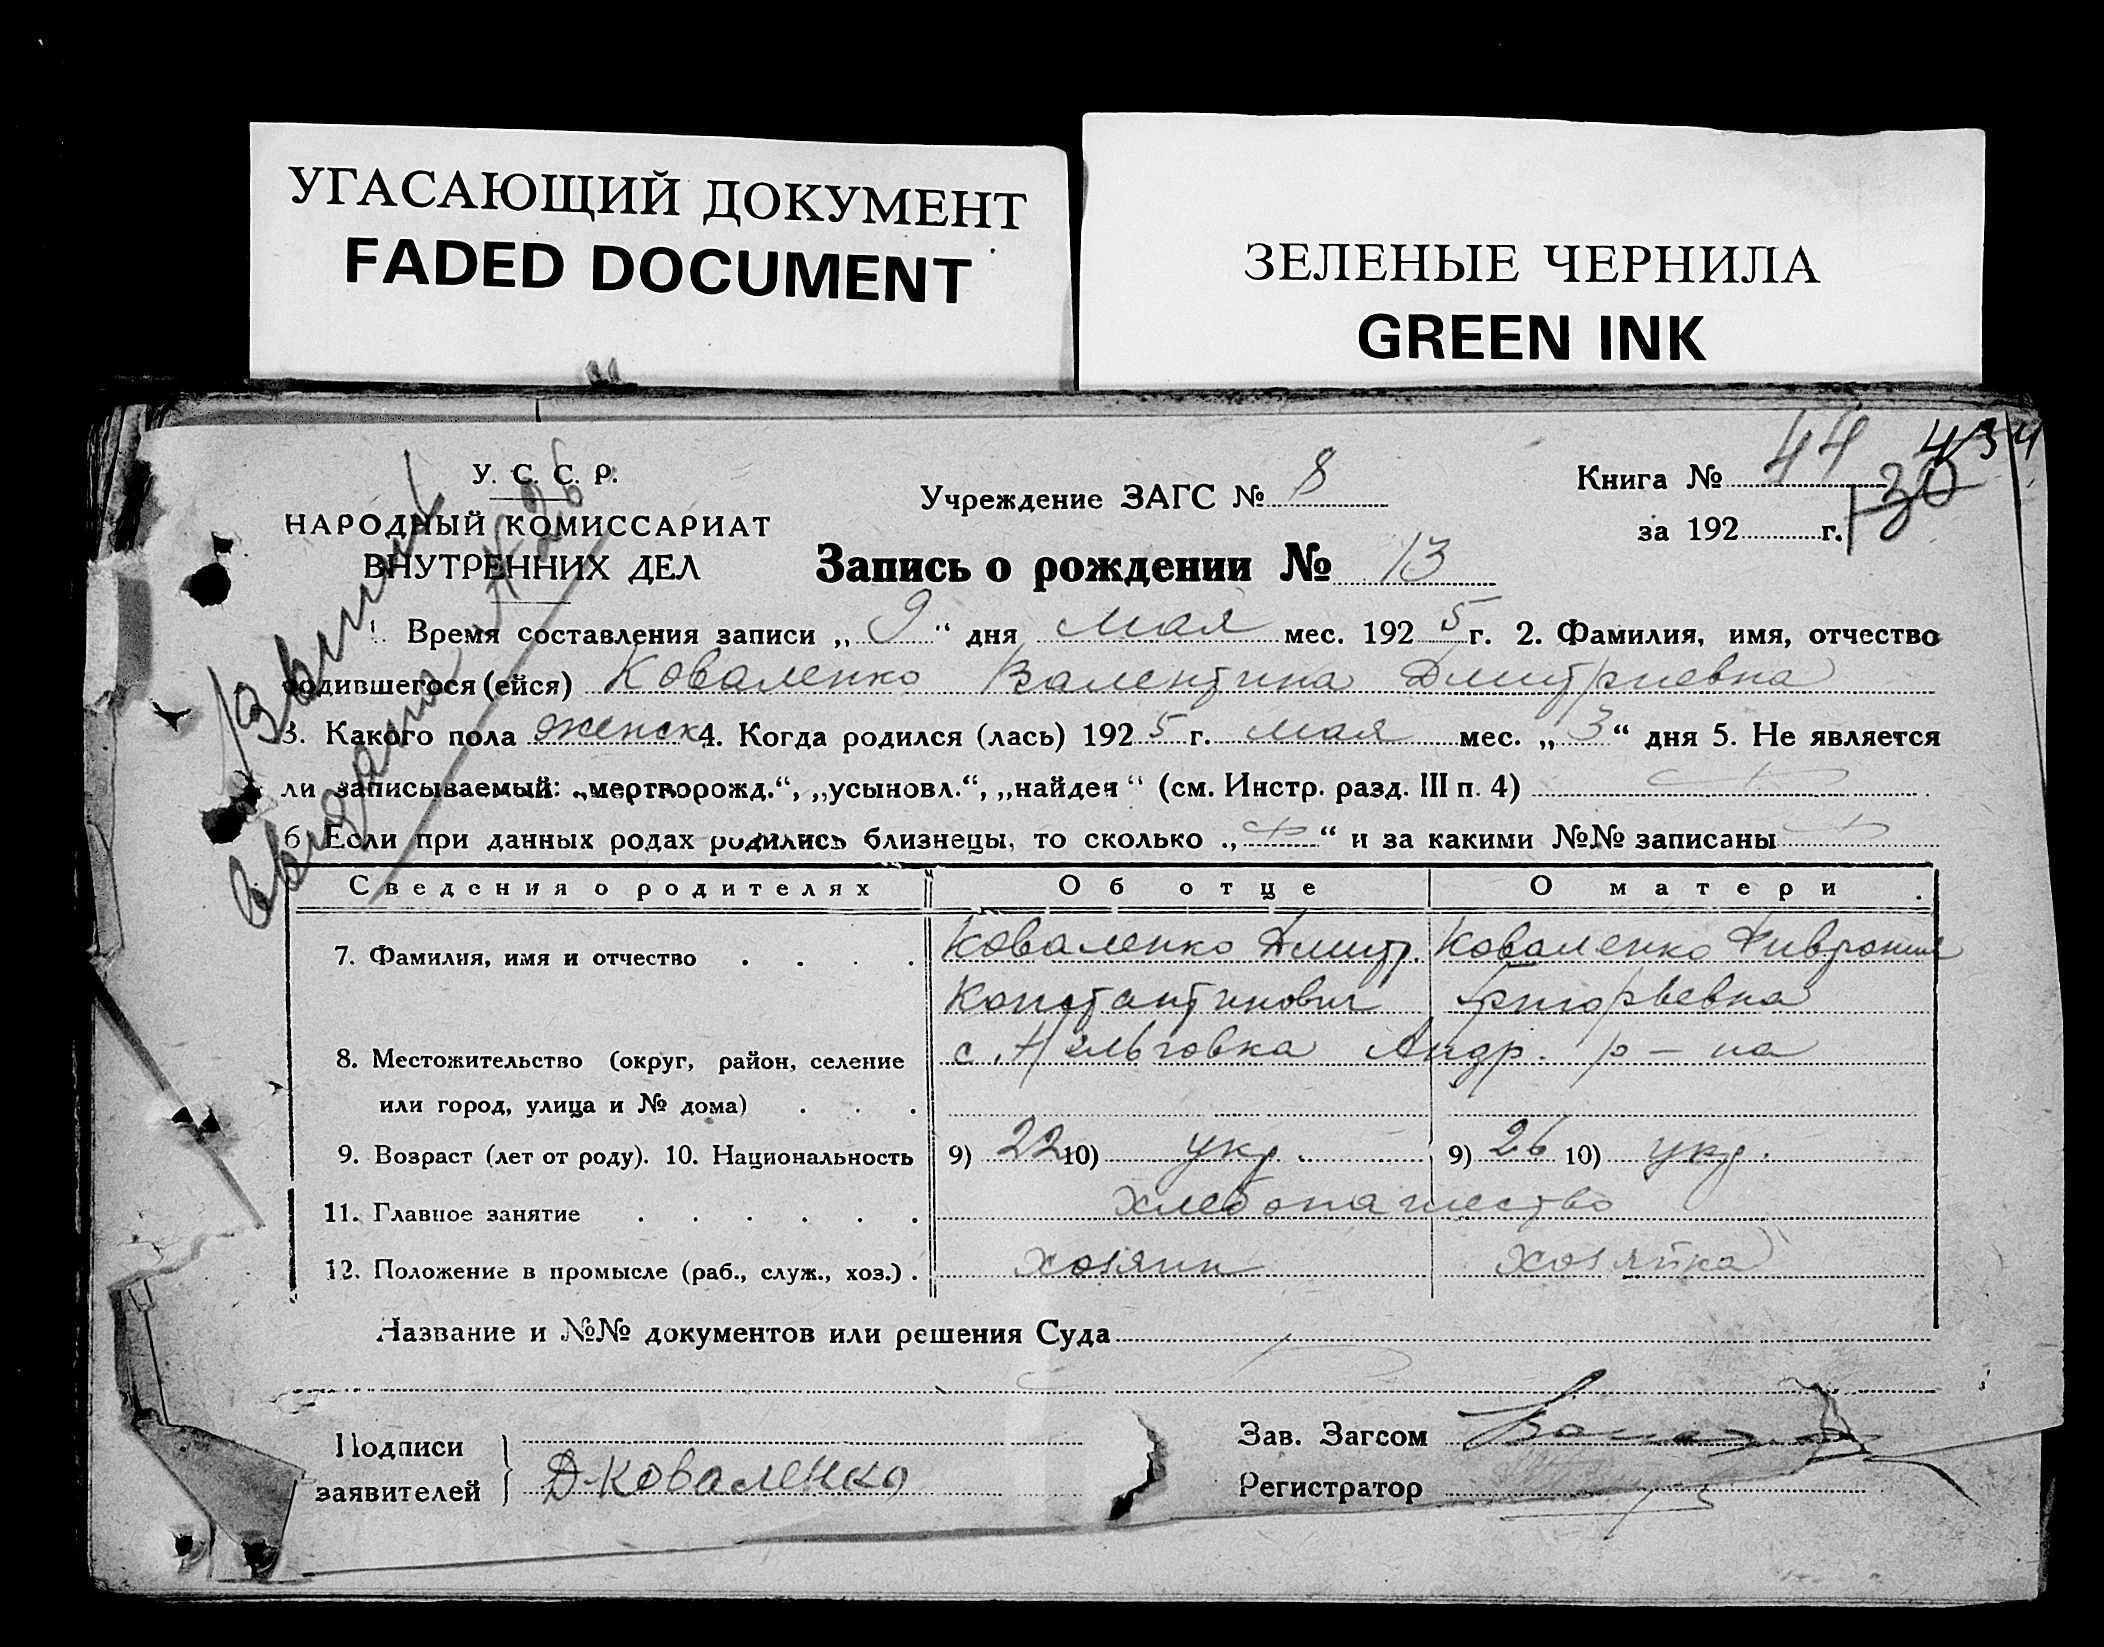 УГАСАЮЩИЙ ДОКУМЕНТ
FADED DOCUMENT
ЗЕЛЕНЫЕ ЧЕРНИЛА
GREEN INK
434
У. С. С. Р.
НАРОДНЫЙ КОМИССАРИАТ
ВНУТРЕННИХ ДЕЛ
Учреждение ЗАГС № 8
Книга № 44
130
за 192 г.
Запись о рождении № 13
1. Время составления записи „ 9 “ дня мая мес. 192 5 г. 2. Фамилия, имя, отчество
родившегося (ейся) Коваленко Валентина Дмитриевна
3. Какого пола женск 4. Когда родился (лась) 192 5 г. мая мес. „ 3 “ дня 5. Не является
ли записываемый: „мертворожд.“, „усыновл.“, „найден“ (см. Инстр. разд. III п. 4)
6 Если при данных родах родились близнецы, то сколько „ “ и за какими №№ записаны
Сведения о родителях Об отце О матери
7. Фамилия, имя и отчество Коваленко Дмитр. Коваленко Фиврония
Константинович Григорьевна
8. Местожительство (округ, район, селение с. Андр. р-на
или город, улица и № дома)
9. Возраст (лет от роду). 10. Национальность 9) 22 10) укр. 9) 26 10) укр.
11. Главное занятие хлебопашество
12. Положение в промысле (раб., служ., хоз.) хозяин хозяйка
Название и №№ документов или решения Суда
Подписи
заявителей Д Коваленко
Зав. Загсом
Регистратор